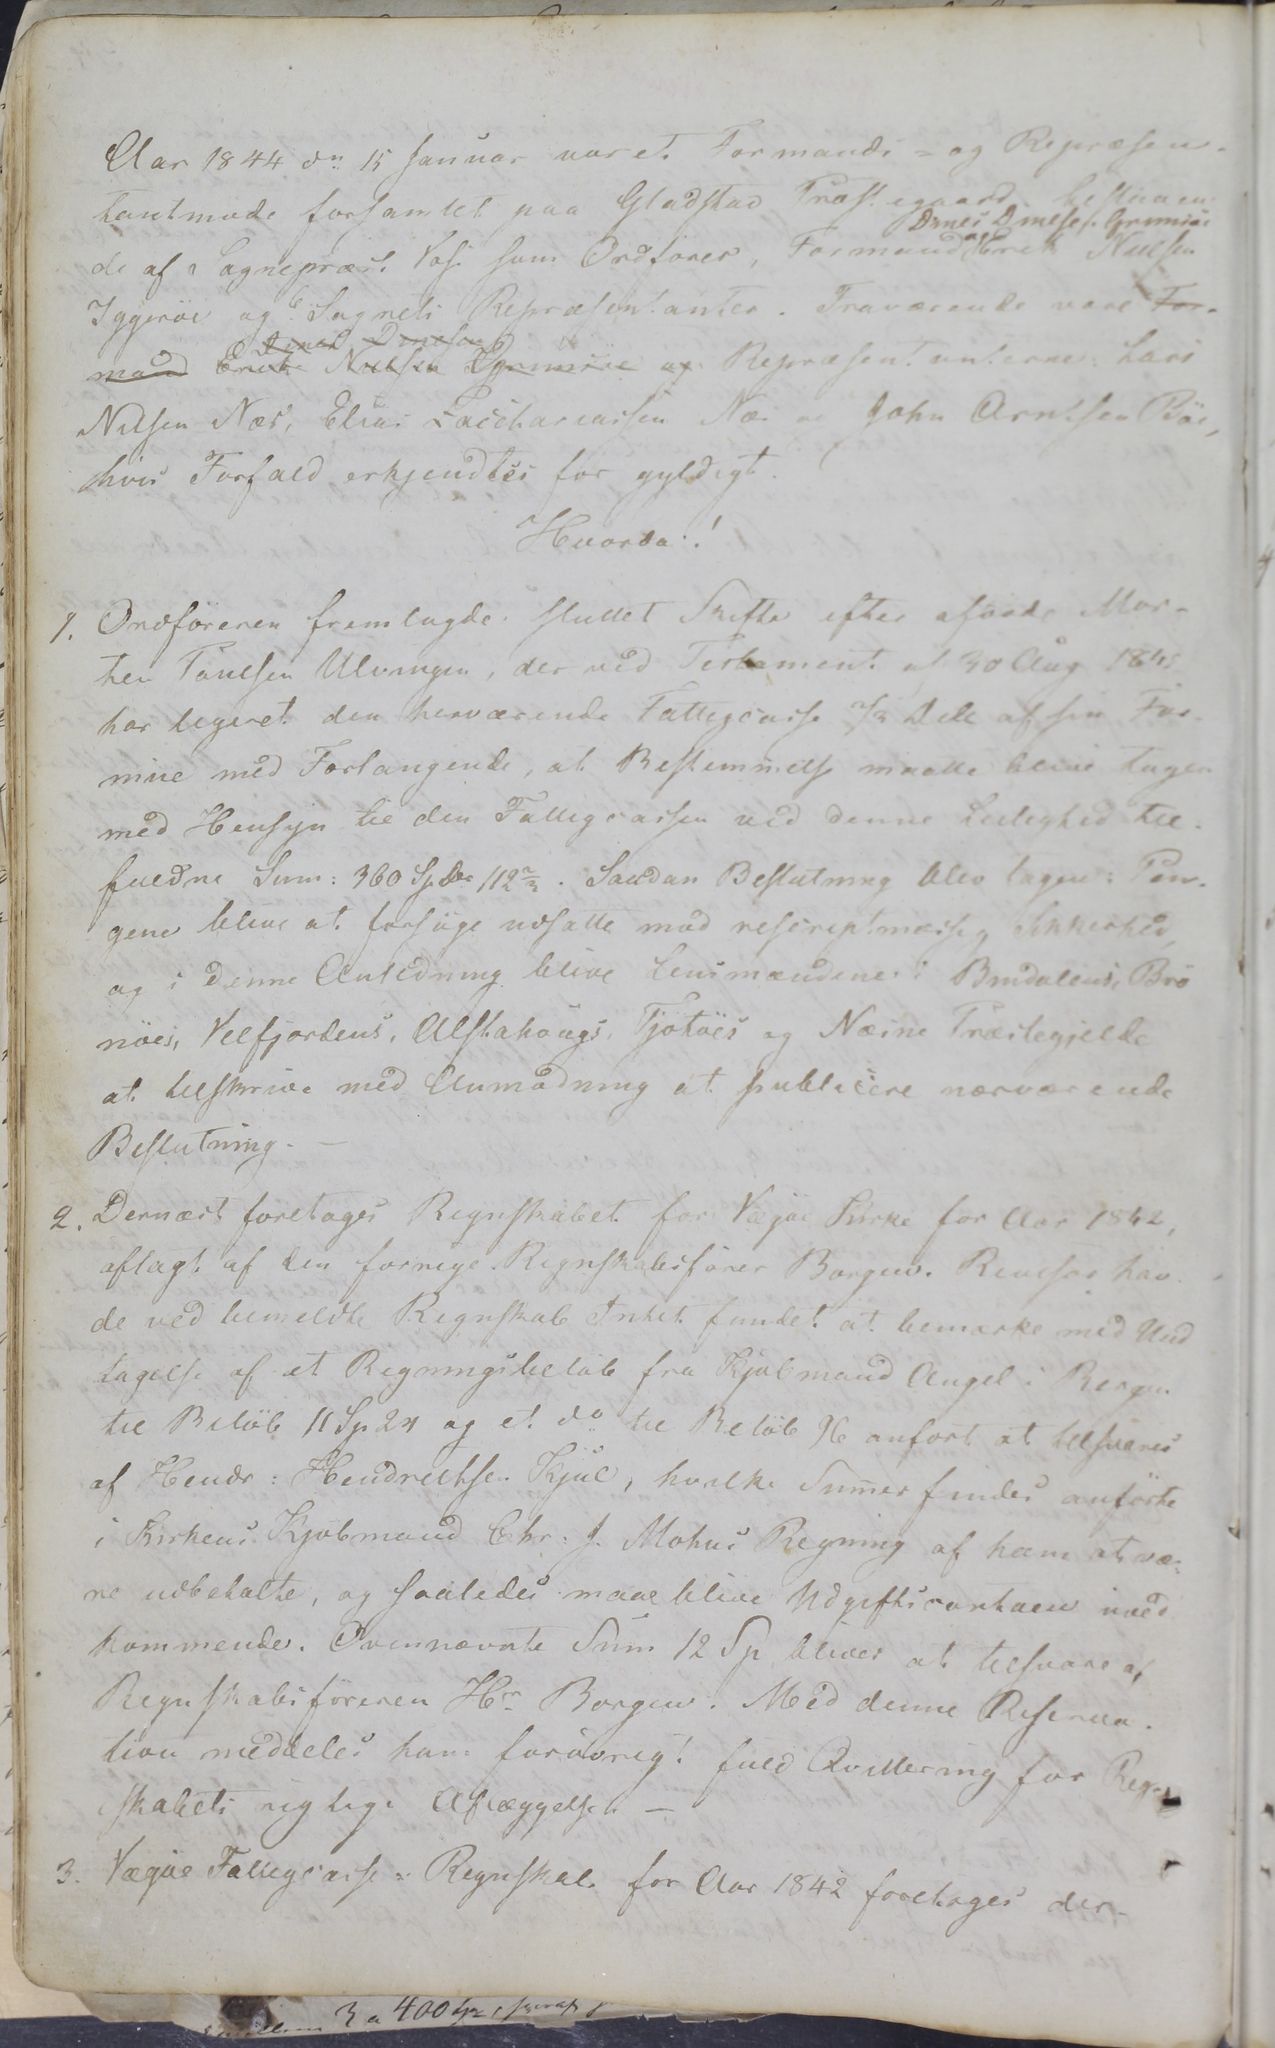 Aar 1844 dn 15 Januar var et Formands= og Repræsen-
tantmøde forsamlet paa Gladstad Præstegaard bestaaen
Dines Dinesen
de af Sognepræst Vos som Ordförer, Formand Erik Nielsen
Iggeröe og 6 Sognets Repræsentanter. Fraværende vare For-
Dines Dinesen
mand Erik Nielsen og Repræsentanterne: Lars
Nilsen Næs, Elias Zacchariassen Næs og John Arntsen Böe,
hvis Forfald erkjendtes for gyldigt.
Hvorda:!
1. Ordföreren fremlagde sluttet Skifte efter afdöde Mor-
ten Poulsen Ulvingen, der ved Testament af 30 Aug
har legeret den herværende Fattigcasse 2/3 Dele af sin For-
mue med Forlangende, at Bestemmelse maatte blive tagen
med Hensyn til den Fattigcassen ved denne Leilighed til-
faldne Sum: 360 Spdlr 112. Saadan Beslutning blev tagen: Pen-
gene blive at forsöge udsatte mod rescriptmæssig Sikkerhed,
og i denne Anledning blive Lensmændene i Bindalens, Brö
nöes, Velfjordens, Alstahougs, Tjötöes og Næsne Præstegjelde
at tilskrive med Anmodning at publicere nærværende
Beslutning. —
2. Dernæst foretoges Regnskabet for Vegöe Kirke for Aar 1842,
aflagt af den forrige Regnskabsförer Borgen. Revisor hav-
de ved bemeldte Regnskab Intet fundet at bemærke med Und
tagelse af et Regningsbelöb fra Kjöbmand Angel i Bergen
til Belöb 11 Sp 24 og et do til Belöb 96 anfört at tilsvares
af Hendr: Hendrichsen Kjul, hvilke Summer findes anförte
i Kirkens Kjöbmand Chr: J. Mohns Regning af ham at væ-
re udbetalte, og saaledes maae blive Udgiftscontoen uved
kommende. Ovennævnte Sum 12 Sp bliver at tilsvare af
Regnskabsföreren Hr Borgen. Med denne Reserva-
tion meddeles ham forövrigt fuld Qvittering for Regn-
skabets rigtige Aflæggelse. —
3. Vegöe Fattigcasse = Regnskab for Aar 1842 foretoges der-
3 a 400